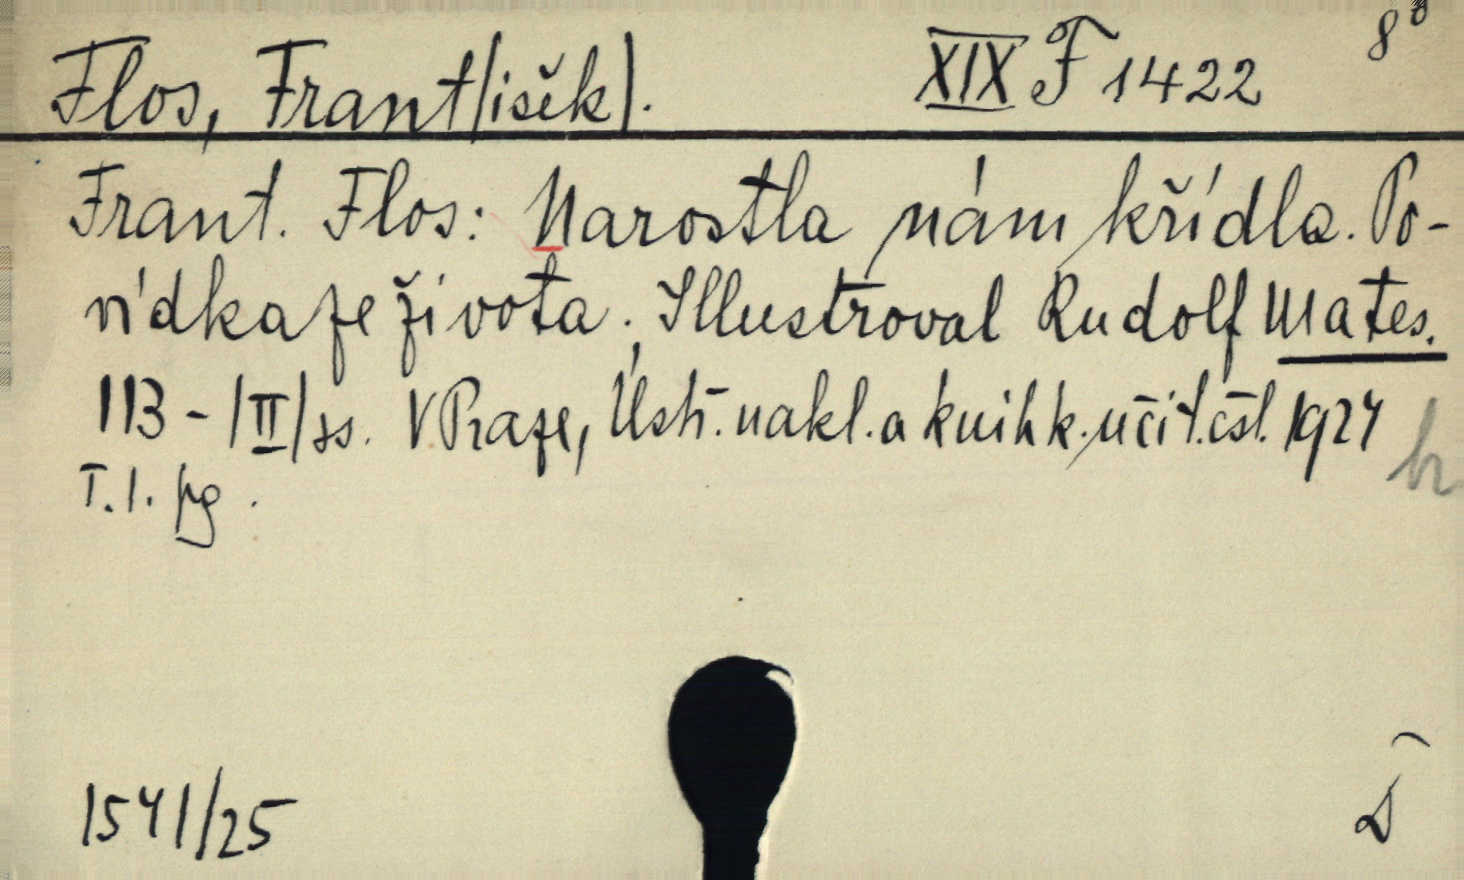 Flos, Frant/išek/. XIX F 1422 8°
Frant. Flos: Narostla nám křídla. Po-
vídka ze života. Illustroval Rudolf Mates.
113 - /II/ ss. V Praze, Ústř. nakl. a knihk. učit. čsl. 1924
T. 1. pg.
1541/25